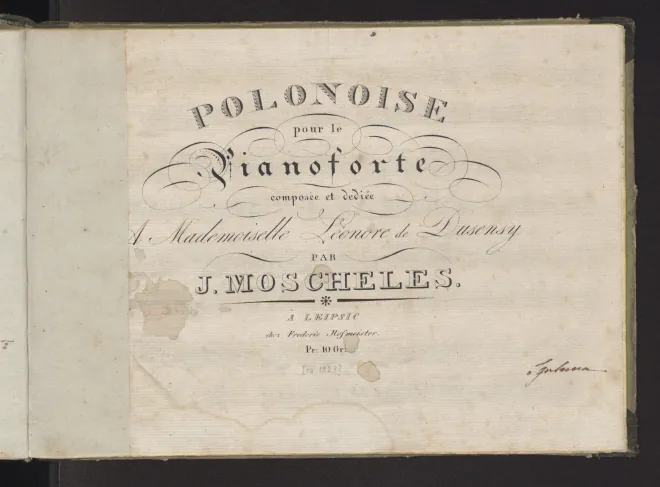 POLONOISE
pour le
Pianoforte
composée et dediée
A Mademoiselle Léonore de Dusensy
PAR
J. MOSCHELES.
À LEIPSIC
chez Frederic Hofmeister.
Pr: 10 Gr: